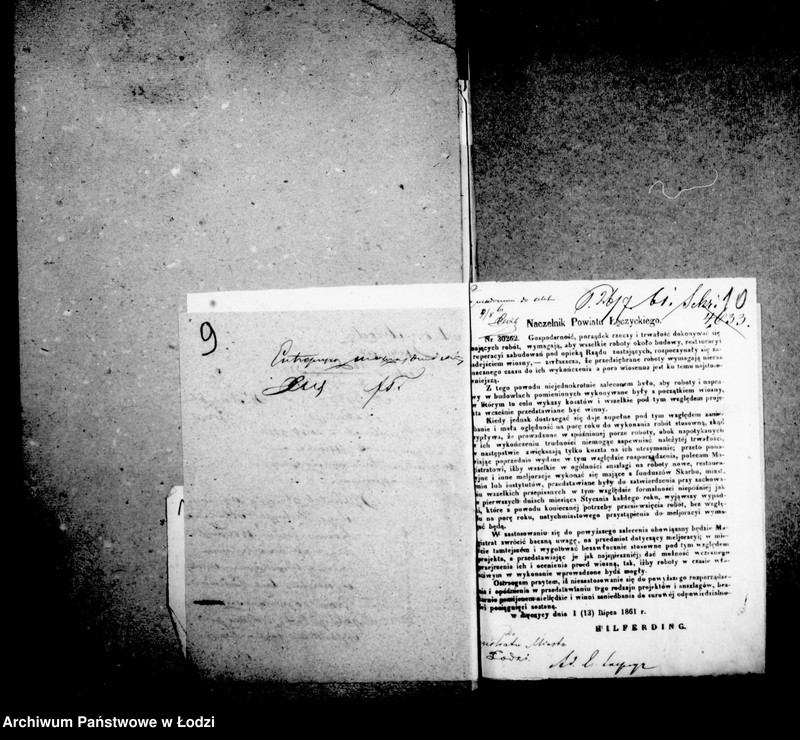 9
10
Naczelnik Powiatu Łęczyckiego.
Nr 30262. Gospodarność, porządek rzeczy i trwałość dokonywać się
mających robót, wymagają, aby wszelkie roboty około budowy, restauracyi
reperacyi zabudowań pod opieką Rządu zostających, rozpoczynały się za
nadejściem wiosny,— zwłaszcza, że przedsiębrane roboty wymagają nieraz
znacznego czasu do ich wykończenia a pora wiosenna jest ku temu najstoso-
wniejszą.
Z tego powodu niejednokrotnie zalecanem było, aby roboty i napra-
wy w budowlach pomienionych wykonywane były z początkiem wiosny,
w którym to celu wykazy kosztów i wszelkie pod tym względem proje-
kta wcześnie przedstawiane być winny.
Kiedy jednak dostrzegać się daje zupełne pod tym względem zanie-
dbanie i mała oględność na porę roku do wykonania robót stosowną, skąd
wypływa, że prowadzone w spóźnionej porze roboty, obok napotykanych
w ich wykończeniu trudności niemogąc zapewniać należytej trwałości,
w następstwie zwiększają tylko koszta na ich utrzymanie; przeto pona-
wiając poprzednio wydane w tym względzie rozporządzenia, polecam Ma-
gistratowi, iżby wszelkie w ogólności anszlagi na roboty nowe, restaura-
cyjne i inne melioracje wykonać się mające z funduszów Skarbu, miast,
gmin lub instytutów, przedstawiane były do zatwierdzenia przy zachowa-
niu wszelkich przepisanych w tym względzie formalności niepóźniej jak
w pierwszych dniach miesiąca Stycznia każdego roku, wyjąwszy wypad-
ki, które z powodu koniecznej potrzeby przedsięwzięcia robót, bez wzglę-
du na porę roku, natychmiastowego przystąpienia do melioracyi wyma-
gać będą.
W zastosowaniu się do powyższego zalecenia obowiązany będzie Ma-
gistrat zwrócić baczną uwagę, na przedmiot dotyczący melioracyj; w mie-
ście tamtejszem i wygotować bezzwłocznie stosowne pod tym względem
projekta, a przedstawiając je jak najspieszniej; dać możność wczesnego
przejrzenia ich i ocenienia przed wiosną, tak, iżby roboty w czasie wła-
ściwym w wykonanie wprowadzone bydź mogły.
Ostrzegam przytem, iż niezastosowanie się do powyższego rozporządze-
nia i opóźnienie w przedstawianiu tego rodzaju projektów i anszlagów, bez-
karnie pominiętem niebędzie i winni zaniedbania do surowej odpowiedzialno-
ści pociągnięci zostaną.
w Łęczycy dnia 1 (13) Lipca 1861 r.
HILFERDING.
Magistratu Miasta
Łodzi.
Archiwum Państwowe w Łodzi